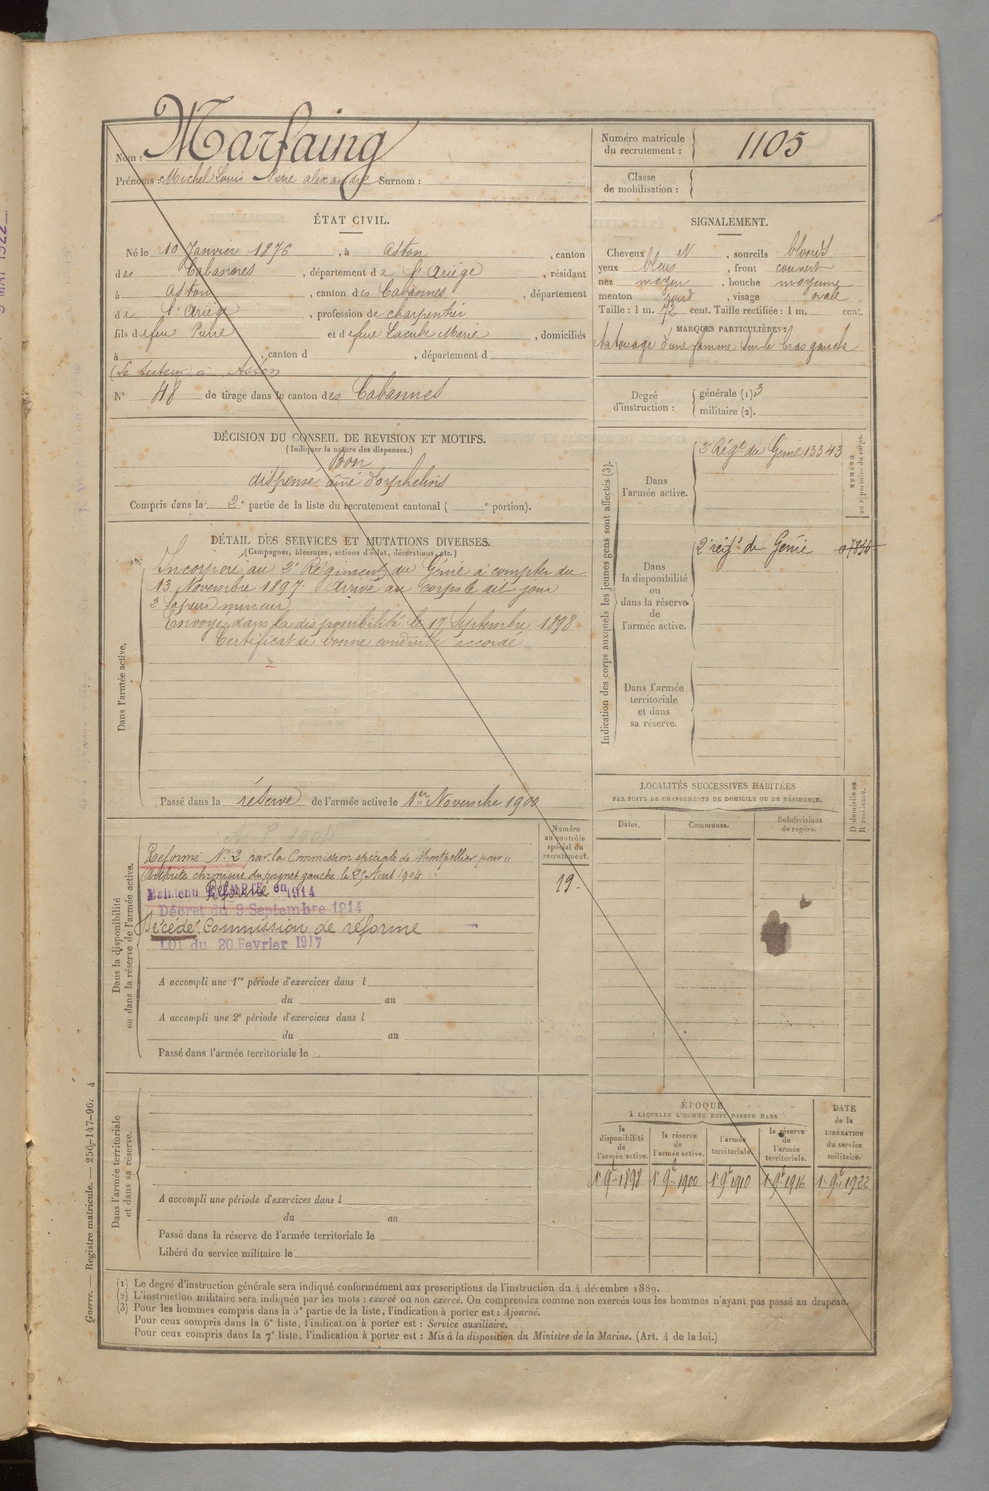 Nom : Marfaing
Prénoms : Michel Louis Pierre alexandre Surnom :
Numéro matricule du recrutement : 1105
Classe de mobilisation :
ÉTAT CIVIL.
Né le 10 Janvier 1876, à Aston, canton
des Cabannes, département de l'Ariège, résidant
à Aston, canton des Cabannes, département
de l'Ariège, profession de charpentier
fils de feu Pierre et de feue Lacube Marie, domiciliés
à , canton d , département d
(Le tuteur à Aston
N° 48 de tirage dans le canton des Cabannes
SIGNALEMENT.
Cheveux bl N, sourcils blonds
yeux bleus, front couvert
nez moyen, bouche moyenne
menton rond, visage ovale
Taille : 1 m. 72 cent. Taille rectifiée : 1 m. cent.
MARQUES PARTICULIÈRES :
tatouage d'une famme sur le bras gauche
Degré d'instruction : générale (1) 3
militaire (2).
DÉCISION DU CONSEIL DE REVISION ET MOTIFS.
(Indiquer la nature des dispenses.)
Bon
dispensé aîné d'orphelins
Compris dans la 2e partie de la liste du recrutement cantonal ( e portion).
DÉTAIL DES SERVICES ET MUTATIONS DIVERSES.
(Campagnes, blessures, actions d'éclat, décorations, etc.)
Dans l'armée active.
Incorporé au 2e Régiment du Génie à compter du
13 Novembre 1897. Arrivé au corps le dit jour
2e Sapeur mineur
Envoyé dans la disponibilité le 17 Septembre 1898
Certificat de bonne conduite accordé
Passé dans la réserve de l'armée active le 1er Novembre 1900
Indication des corps auxquels les jeunes gens sont affectés (3).
NUMÉRO au répertoire du corps.
Dans l'armée active.
2e Régt du Génie 13343
Dans la disponibilité ou dans la réserve de l'armée active.
2e régt de Génie
Dans l'armée territoriale et dans sa réserve.
LOCALITÉS SUCCESSIVES HABITÉES
PAR SUITE DE CHANGEMENTS DE DOMICILE OU DE RÉSIDENCE.
Dates.
Communes.
Subdivisions de région.
D domicile ou R résidence.
Numéro au contrôle spécial du recrutement.
19.
Dans la disponibilité ou dans la réserve de l'armée active.
Réformé No 2 par la Commission spéciale de Montpellier pour
Arthrite chronique du poignet gauche le 25 Aout 1904
Maintenu Réformé en 1914
Décret du 9 Septembre 1914
Décédé. Commission de réforme
LOI du 20 Fevrier 1917
A accompli une 1re période d'exercices dans l
du au
A accompli une 2e période d'exercices dans l
du au
Passé dans l'armée territoriale le
Dans l'armée territoriale et dans sa réserve.
A accompli une période d'exercices dans l
du au
Passé dans la réserve de l'armée territoriale le
Libéré du service militaire le
ÉPOQUE
À LAQUELLE L'HOMME DOIT PASSER DANS
la disponibilité de l'armée active.
la réserve de l'armée active.
l'armée territoriale.
la réserve de l'armée territoriale.
DATE de la LIBÉRATION du service militaire.
1r 9bre 1898
1r 9bre 1900
1r 9bre 1910
1r 9bre 1916
1r 9bre 1922
(1) Le degré d'instruction générale sera indiqué conformément aux prescriptions de l'instruction du 4 décembre 1889.
(2) L'instruction militaire sera indiquée par les mots : exercé ou non exercé. On comprendra comme non exercés tous les hommes n'ayant pas passé au drapeau.
(3) Pour les hommes compris dans la 5e partie de la liste, l'indication à porter est : Ajourné.
Pour ceux compris dans la 6e liste, l'indication à porter est : Service auxiliaire.
Pour ceux compris dans la 7e liste, l'indication à porter est : Mis à la disposition du Ministre de la Marine. (Art. 4 de la loi.)
Guerre. — Registre matricule. — 256-147-96. 4